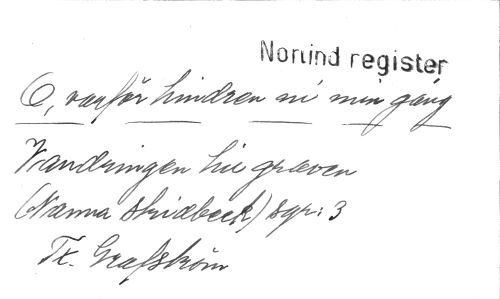 Norlind register
O, varför hindren ni min gång
Vandringen till graven
(Nanna Skridbeck) sgr: 3
Tx. Grafström